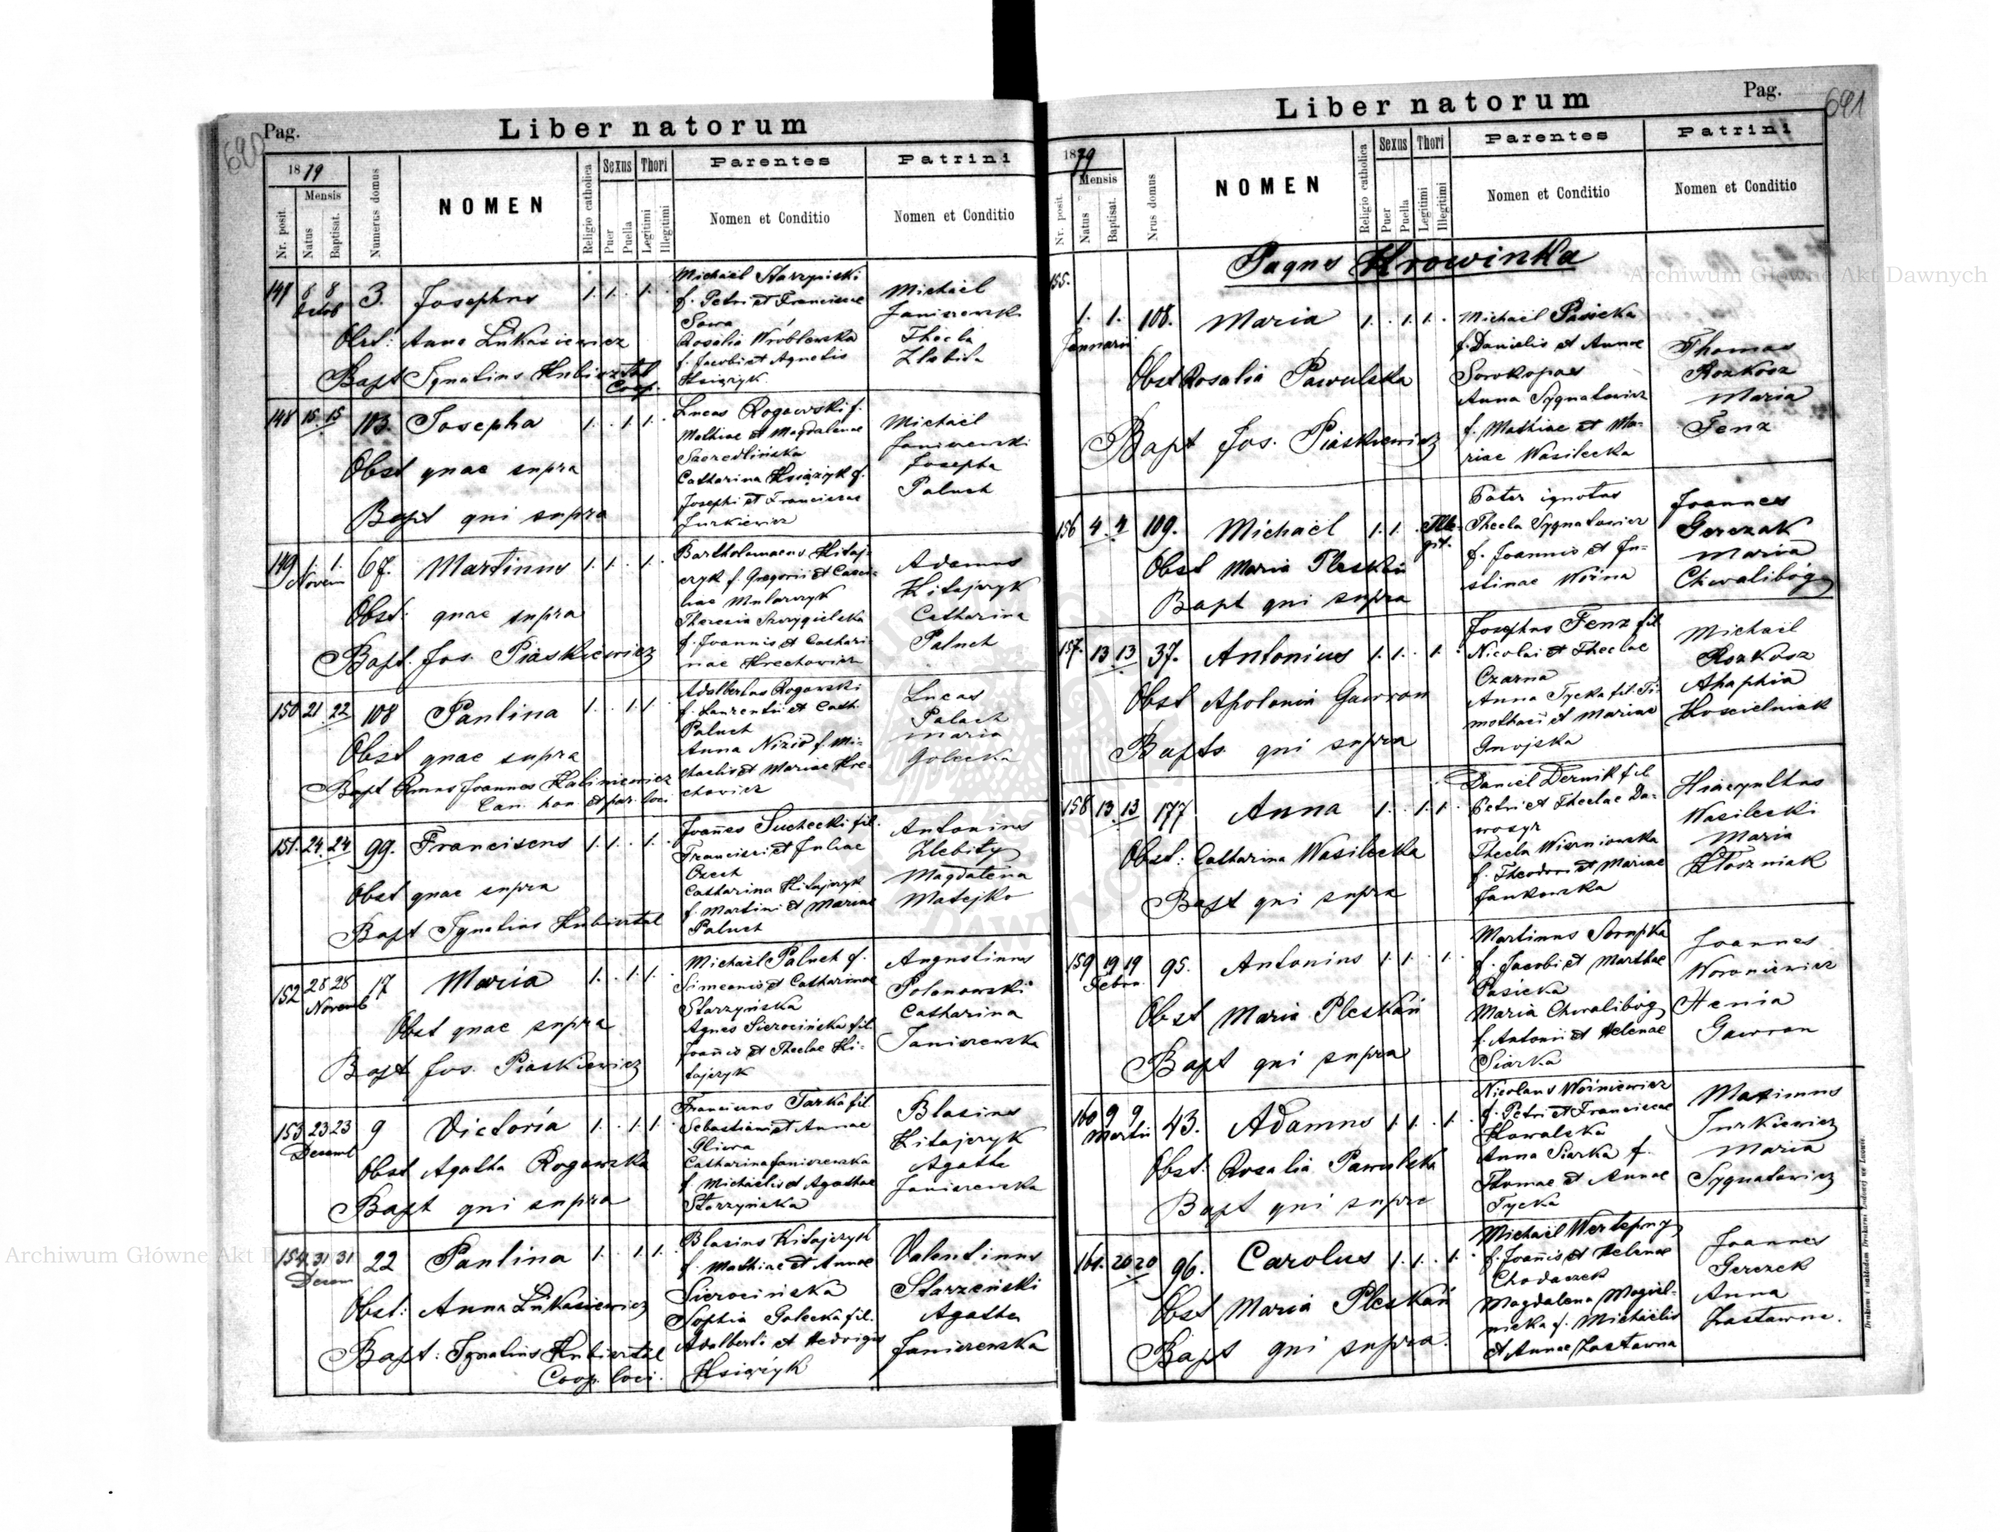 690
Pag.
Liber natorum
1879
Mensis
Nr. posit.
Natus
Baptisat.
Numerus domus
NOMEN
Religio catholica
Sexus
Puer
Puella
Thori
Legitimi
Illegitimi
Parentes
Nomen et Conditio
Patrini
Nomen et Conditio
147 8 8 3. Josephus 1. 1. 1.
Octob
Obst: Anna Łukasiewicz
Bapt Ignatius Kubisztal
Coop.
Michaël Starzyński
f. Petri et Franciscae
Sowa
Rosalia Wróblewska
f. Jacobi et Agnetis
Książyk
Michaël
Janiszewski
Thecla
148 15. 15 103 Josepha 1. 1 1.
Obst quae supra
Bapt qui supra
Lucas Rogowski f.
Mathiae et Magdalenae
Catharina Książyk f.
Josephi et Franciscae
Jurkiewicz
Michaël
Janiszewski
Josepha
Paluch
149 1. 1. 67. Martinus 1. 1. 1.
Novem
Obst: quae supra
Bapt. Jos. Piaskiewicz
Bartholomaeus Kitaj-
czyk f. Gregorii et Caeci-
liae Mularczyk
f. Joannis et Cathari-
nae Krechowicz
Adamus
Kitajczyk
Catharina
Paluch
150 21 22 108 Paulina 1. 1 1.
Obst quae supra
Bapt Joannes Kaliniewicz
Can. hon. et par. loci
Adalbertus Rogowski
f. Laurentii et Cath.
Paluch
Anna Nizio f. Mi-
chaelis et Mariae Kre-
chowicz
Lucas
Paluch
Maria
Golecka
151. 24. 24 99. Franciscus 1. 1. 1.
Obst quae supra
Bapt Ignatius Kubisztal
Joañes Suchecki fil.
Francisci et Juliae
Czech
Catharina Kitajczyk
f. Martini et Mariae
Paluch
Antonius
Magdalena
Matejko
152 28 28 17 Maria 1. 1 1.
Novemb
Obst quae supra
Bapt Jos. Piaskiewicz
Michaël Paluch f.
Simeonis et Catharinae
Starzyńska
Agnes Sierocińska fil.
Joañis et Theclae Ki-
tajczyk
Augustinus
Polanowski
Catharina
Janiszewska
153 23 23 9 Victoria 1. 1 1.
Decemb
Obst Agatha Rogowska
Bapt qui supra
Franciscus Tarka fil
Sebastiani et Annae
Gliwa
Catharina Janiszewska
f. Michaëlis et Agathae
Starzyńska
Blasius
Kitajczyk
Agatha
Janiszewska
154 31 31 22 Paulina 1. 1 1.
Decem
Obst: Anna Łukasiewicz
Bapt: Ignatius Kubisztal
Coop. loci.
Blasius Kitajczyk
f. Mathiae et Annae
Sierocińska
Sophia Golecka fil.
Adalberti et Hedvigis
Książyk
Valentinus
Starzeński
Agatha
Janiszewska
Liber natorum
Pag.
691
1879
Mensis
Nr. posit.
Natus
Baptisat.
Nrus domus
NOMEN
Religio catholica
Sexus
Puer
Puella
Thori
Legitimi
Illegitimi
Parentes
Nomen et Conditio
Patrini
Nomen et Conditio
Pagus Krowinka
155.
1. 1. 108. Maria 1. 1 1.
Januarii
Obst Rosalia Pawulska
Bapt Jos. Piaskiewicz
Michaël Pasieka
f. Danielis et Annae
Sorokopas
Anna Sygnatowicz
f. Mathiae et Ma-
riae Wasilecka
Thomas
Rozkosz
Maria
Fenz
156 4. 4 109. Michaël 1. 1. Ille-
git.
Obst Maria Pleskań
Bapt qui supra
Pater ignotus
Thecla Sygnatowicz
f. Joannis et Ju-
stinae Woźna
Joannes
Gerczak
Maria
Chwalibóg
157. 13 13 37. Antonius 1. 1. 1.
Obst Apolonia Gawron
Bapts. qui supra
Josephus Fenz fil
Nicolai et Theclae
Czarna
Anna Tycka fil. Ti-
mothaei et Mariae
Gnojska
Michaël
Rozkosz
Ahaphia
Koscielniak
158 13 13 177 Anna 1. 1 1.
Obst: Catharina Wasilecka
Bapt qui supra
Daniel Dernik fil
Petri et Theclae Da-
wosyr
Thecla Wierniowska
f. Theodori et Mariae
Jankowska
Hiacynthus
Wasilecki
Maria
Kłoszniak
159 19 19 95. Antonius 1. 1. 1.
Febru.
Obst Maria Pleskań
Bapt qui supra
Martinus Skrupka
f. Jacobi et Marthae
Pasieka
Maria Chwalibóg
f. Antonii et Helenae
Siarka
Joannes
Woroniewicz
Henia
Gawron
160 9 9 43. Adamus 1. 1. 1.
Martii
Obst: Rosalia Pawulska
Bapt qui supra
Nicolaus Woźniewicz
f. Petri et Franciscae
Kowalska
Anna Siarka f.
Thomae et Annae
Tycka
Maximus
Jurkiewicz
Maria
Sygnatowicz
161. 20 20 96. Carolus 1. 1. 1.
Obst Maria Pleskań
Bapt qui supra.
Michaël Wertepny
f. Joañis et Helenae
Chodaczek
Magdalena Magiel-
nicka f. Michaëlis
et Annae Zastawna
Joannes
Gerczek
Anna
Zastawna.
Drukiem i nakładem Drukarni Ludowej we Lwowie.
Archiwum Główne Akt Dawnych
Archiwum Główne Akt Dawnych